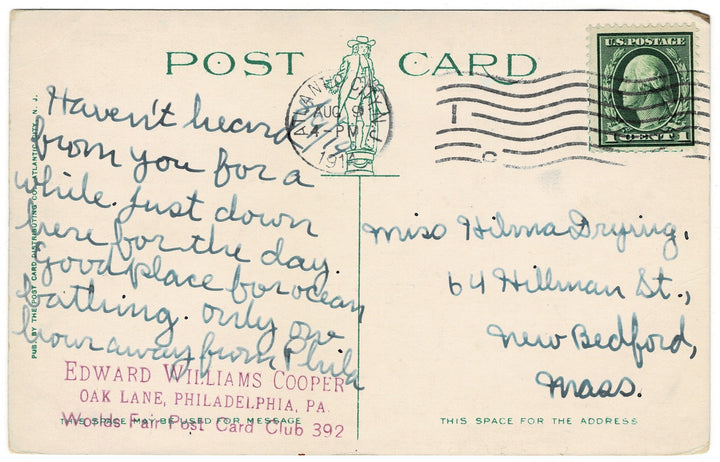 POST CARD
ATLANTIC CITY
AUG 9
4-PM
U.S. POSTAGE
1 CENT 1
Haven't heard
from you for a
while. Just down
here for the day.
Good place for ocean
bathing. only one
hour away from Phila
Miss Hilma Drying,
64 Hillman St.,
New Bedford,
Mass.
EDWARD WILLIAMS COOPER
OAK LANE, PHILADELPHIA, PA.
Worlds Fair Post Card Club 392
THIS SPACE MAY BE USED FOR MESSAGE
THIS SPACE FOR THE ADDRESS
PUB. BY THE POST CARD DISTRIBUTING CO. ATLANTIC CITY, N. J.